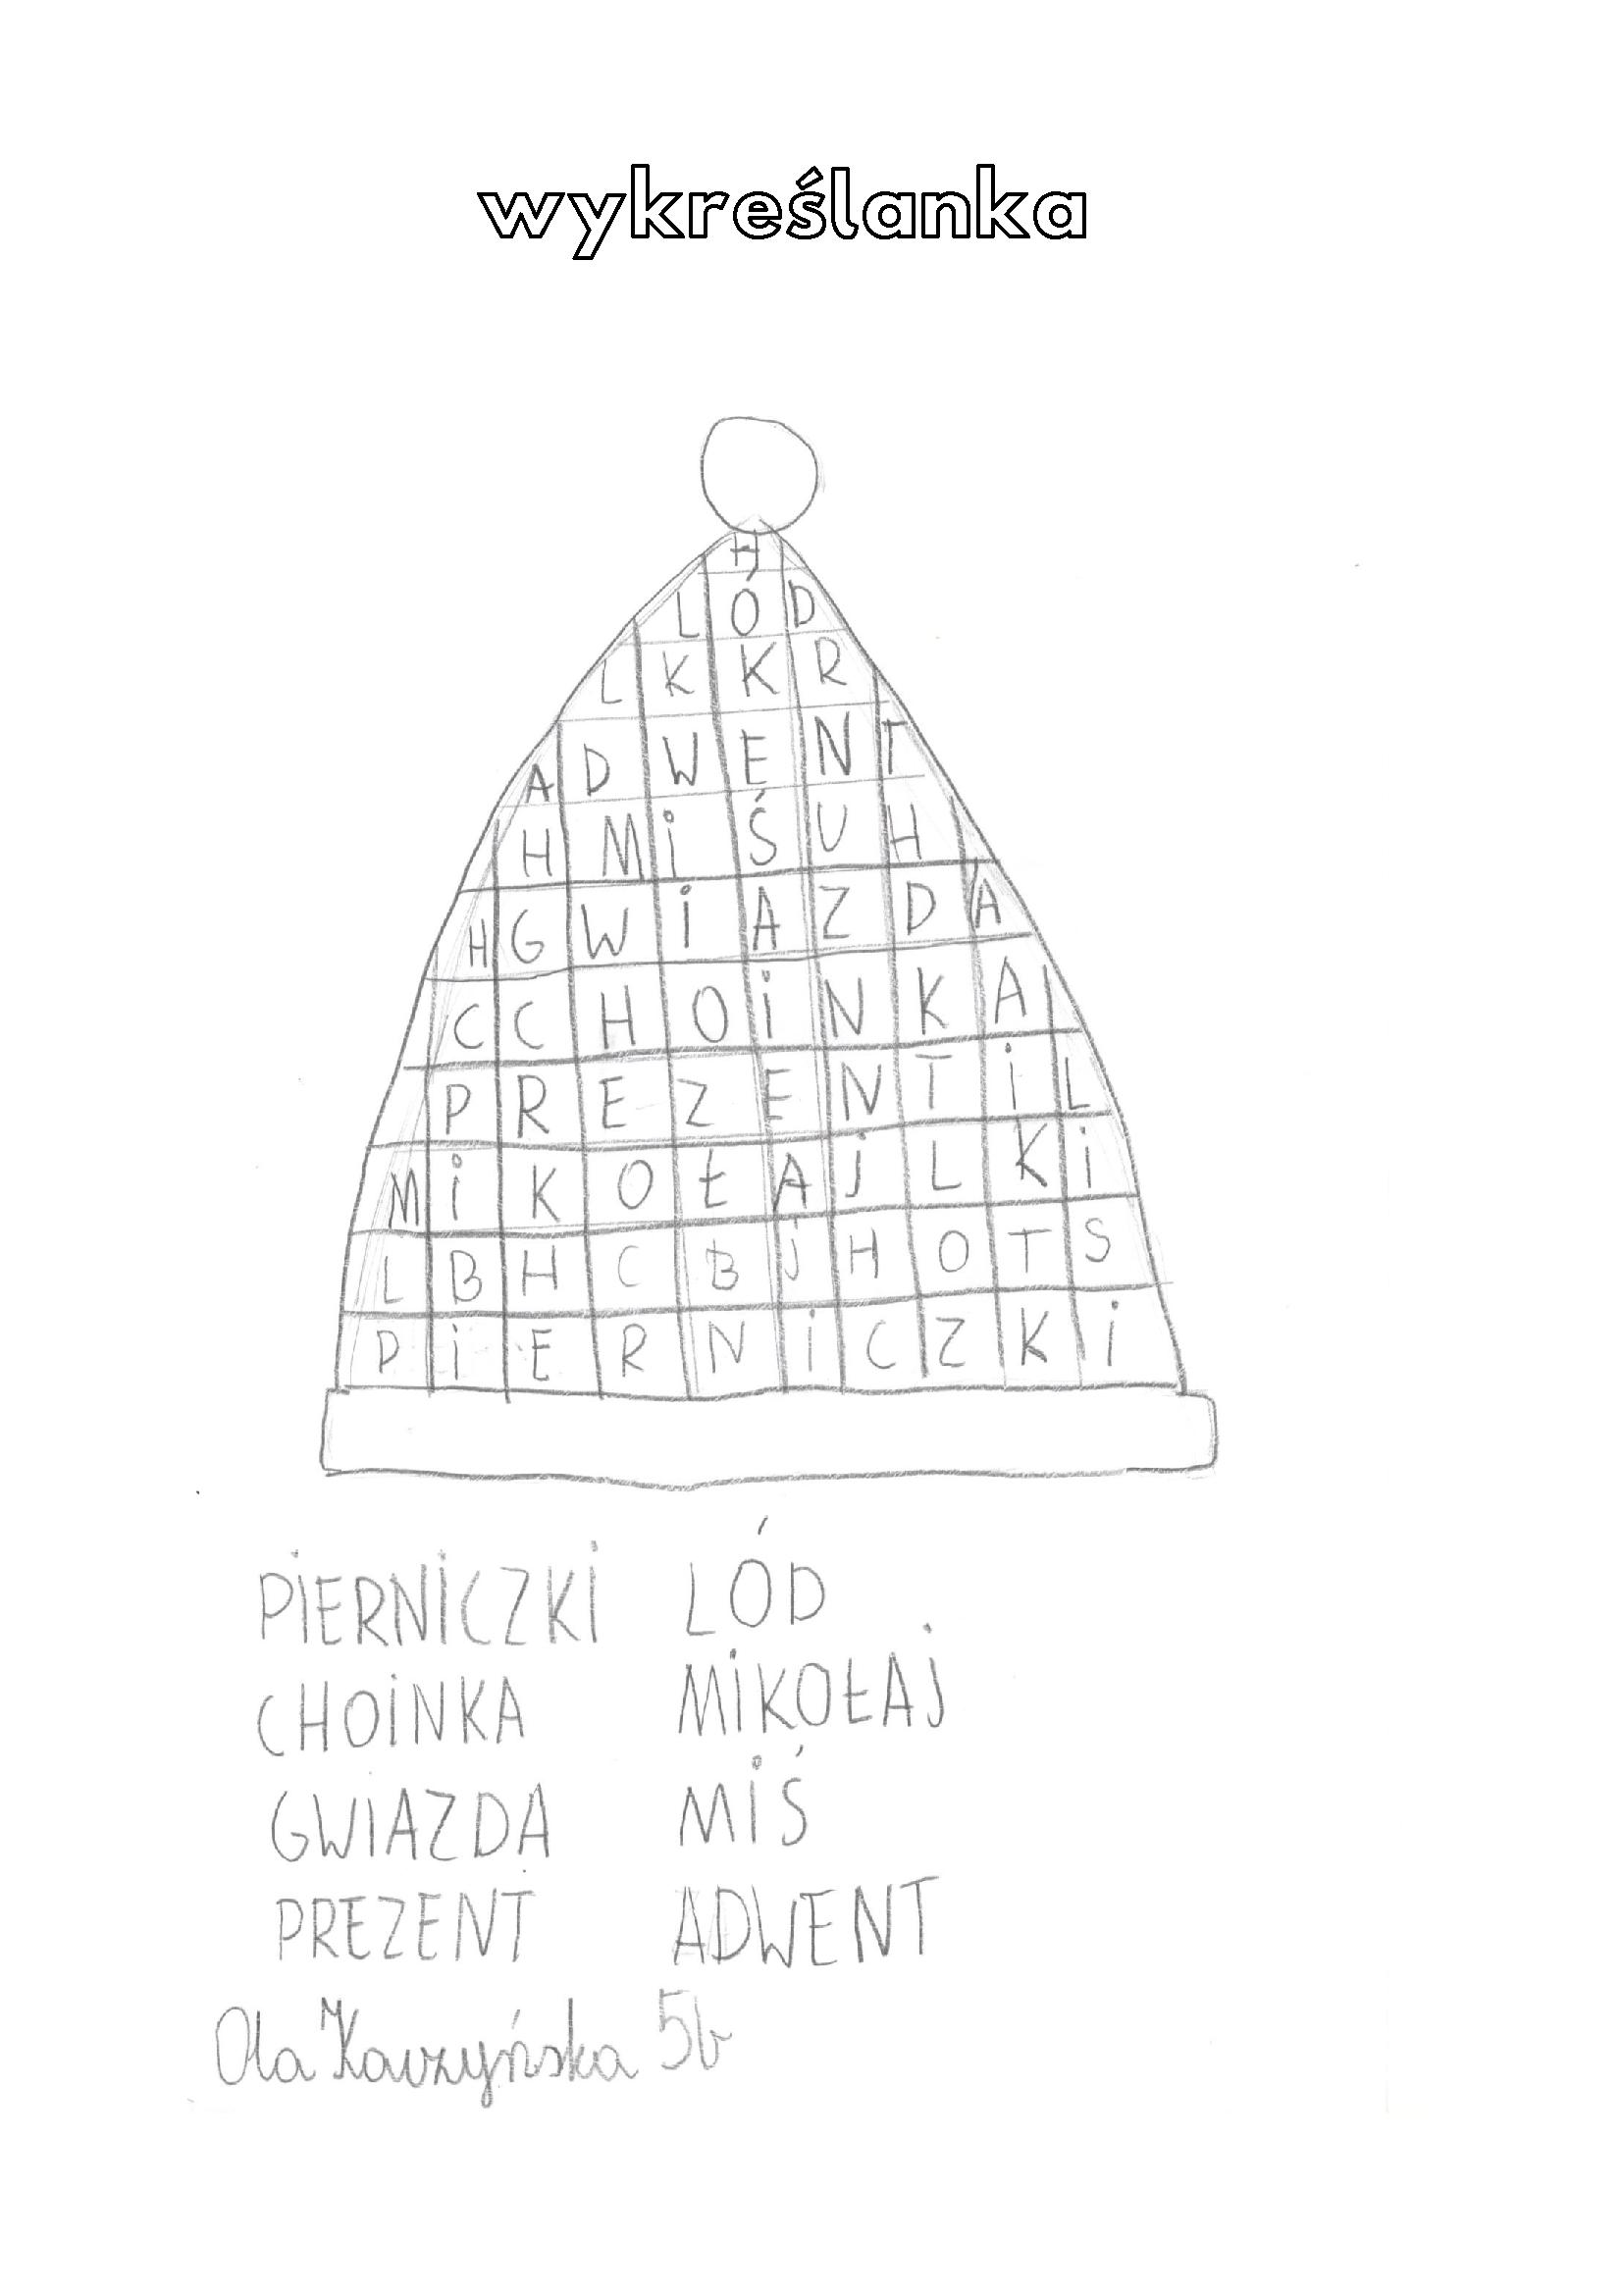 wykreślanka
H
L Ó D
L K K R
A D W E N T
H M i Ś U H
H G W i A Z D A
C C H O i N K A
P R E Z E N T i L
M i K O Ł A J L K i
L B H C B J H O T S
P i E R N i C Z K i
PiERNiCZKi LÓD
CHOiNKA MiKOŁAJ
GWIAZDA MiŚ
PREZENT ADWENT
Ola Kaczyńska 5b